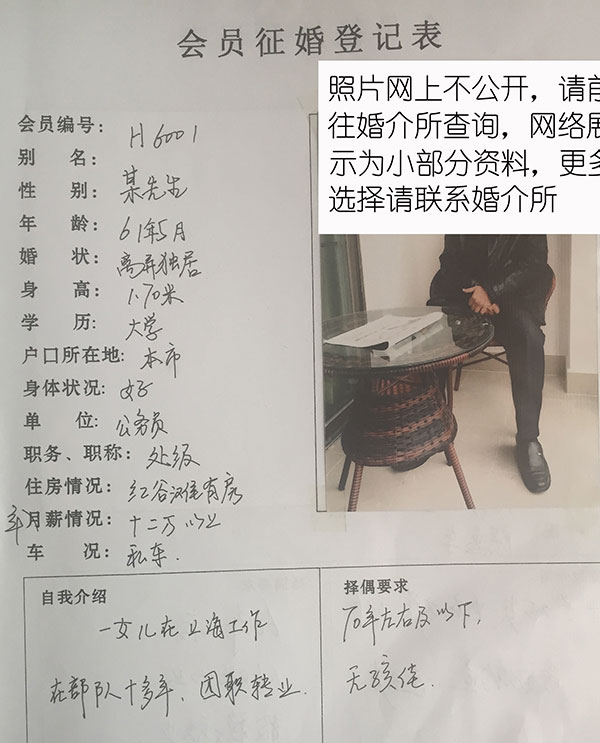 会员征婚登记表
照片网上不公开，请前
往婚介所查询，网络展
示为小部分资料，更多
选择请联系婚介所
会员编号：H6001
别 名：某先生
性 别：
年 龄：61年5月
婚 状：离异独居
身 高：1.70米
学 历：大学
户口所在地：本市
身体状况：好
单 位：公务员
职务、职称：处级
住房情况：红谷滩有房
年月薪情况：十二万以上
车 况：私车.
自我介绍
一女儿在上海工作
在部队十多年、团职转业.
择偶要求
70年左右及以下，
无孩住.